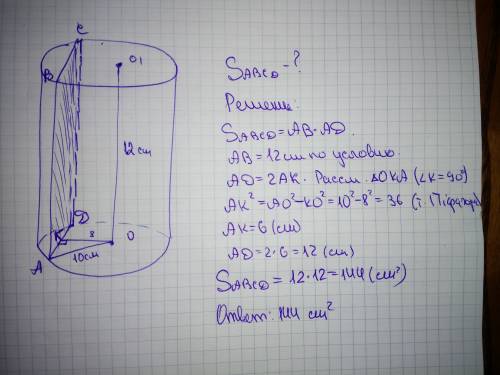 C
B
O1
12 см
D
K
8
O
A
10см
SABCD - ?
Решение:
SABCD = AB · AD.
AB = 12 см по условию.
AD = 2AK. Рассм. ΔOKA (∠K = 90°)
AK² = AO² - KO² = 10² - 8² = 36 (т. Піфагора)
AK = 6 (см)
AD = 2·6 = 12 (см)
SABCD = 12·12 = 144 (см²)
Ответ: 144 см²